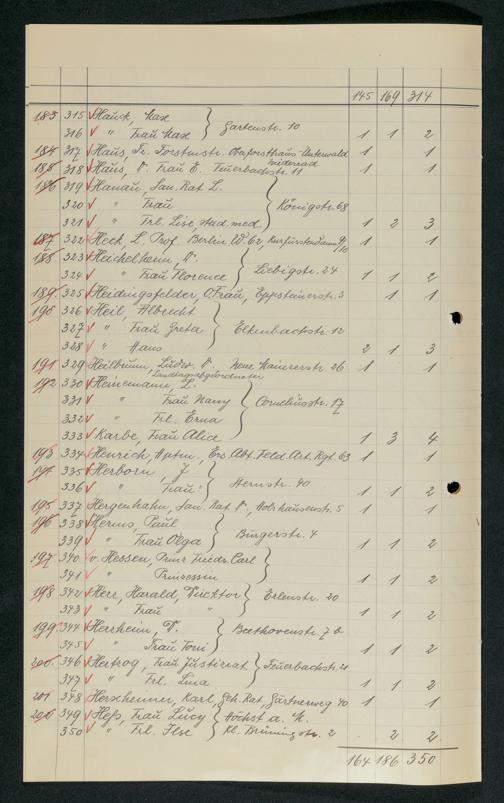 145 169 314
183 315 Hauck, Max } Gartenstr. 10
316 " Frau Max 1 1 2
184 317 Haus, Fr. Forstmstr. Oberforsthaus-Unterwald 1 1
Niederrad
185 318 Haus, Dr. Frau E. Feuerbachstr. 11 1 1
186 319 Hanau, San. Rat L. } Königstr. 68
320 " Frau
321 " Frl. Lise, stud. med. 1 2 3
187 322 Heck, L. Prof. Berlin W 62, Kurfürstendamm 9/10 1 1
188 323 Heichelheim, Dr. } Liebigstr. 24
324 " Frau Florence 1 1 2
189 325 Heidingsfelder, O. Frau, Eppsteinerstr. 3 1 1
190 326 Heil, Albrecht } Elkenbachstr. 12
327 " Frau Greta
328 " Hans 2 1 3
191 329 Heilbrunn, Ludw. Dr. Neue Mainzerstr. 26 1 1
Landtagsabgeordneter
192 330 Heinemann, L. } Corneliusstr. 17
331 " Frau Nanny
332 " Frl. Erna
333 Karbe, Frau Alice 1 3 4
193 334 Henrich, Hptm., Ers. Abt. Feld. Art. Rgt. 63 1 1
194 335 Herborn, J } Sternstr. 40
336 " Frau 1 1 2
195 337 Hergenhahn, San. Rat Dr., Holzhausenstr. 5 1 1
196 338 Herms, Paul } Bürgerstr. 4
339 " Frau Olga 1 1 2
197 340 v. Hessen, Prinz Friedr. Carl }
341 " Prinzessin 1 1 2
198 342 Herr, Harald, Direktor } Erlenstr. 20
343 " Frau " 1 1 2
199 344 Herxheim, Dr. } Beethovenstr. 7 b
345 " Frau Toni 1 1 2
200 346 Hertzog, Frau Justizrat } Feuerbachstr. 21
347 " Frl. Lina 1 1 2
201 348 Herxheimer, Karl, Geh. Rat, Gärtnerweg 40 1 1
202 349 Heß, Frau Lucy } Höchst a. M.
350 " Frl. Ilse Kl. Brüningstr. 2 2 2
164 186 350